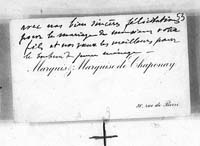 avec nos bien sincères félicitations 53
pour le mariage de monsieur votre
fils, et nos vœux les meilleurs pour
le bonheur du jeune ménage —
Marquis & Marquise de Chaponay
rue de Berri